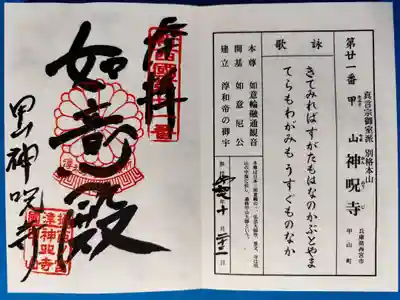 真言宗御室派 別格本山
第廿一番 甲山 神呪寺
兵庫県西宮市
甲山町
詠歌
きてみればすがたもはなのかぶとやま
てらもわがみもうすぐものなか
本尊 如意輪融通観音
開基 如意尼公
建立 淳和帝の御宇
奉拝
如意殿
甲山神呪寺